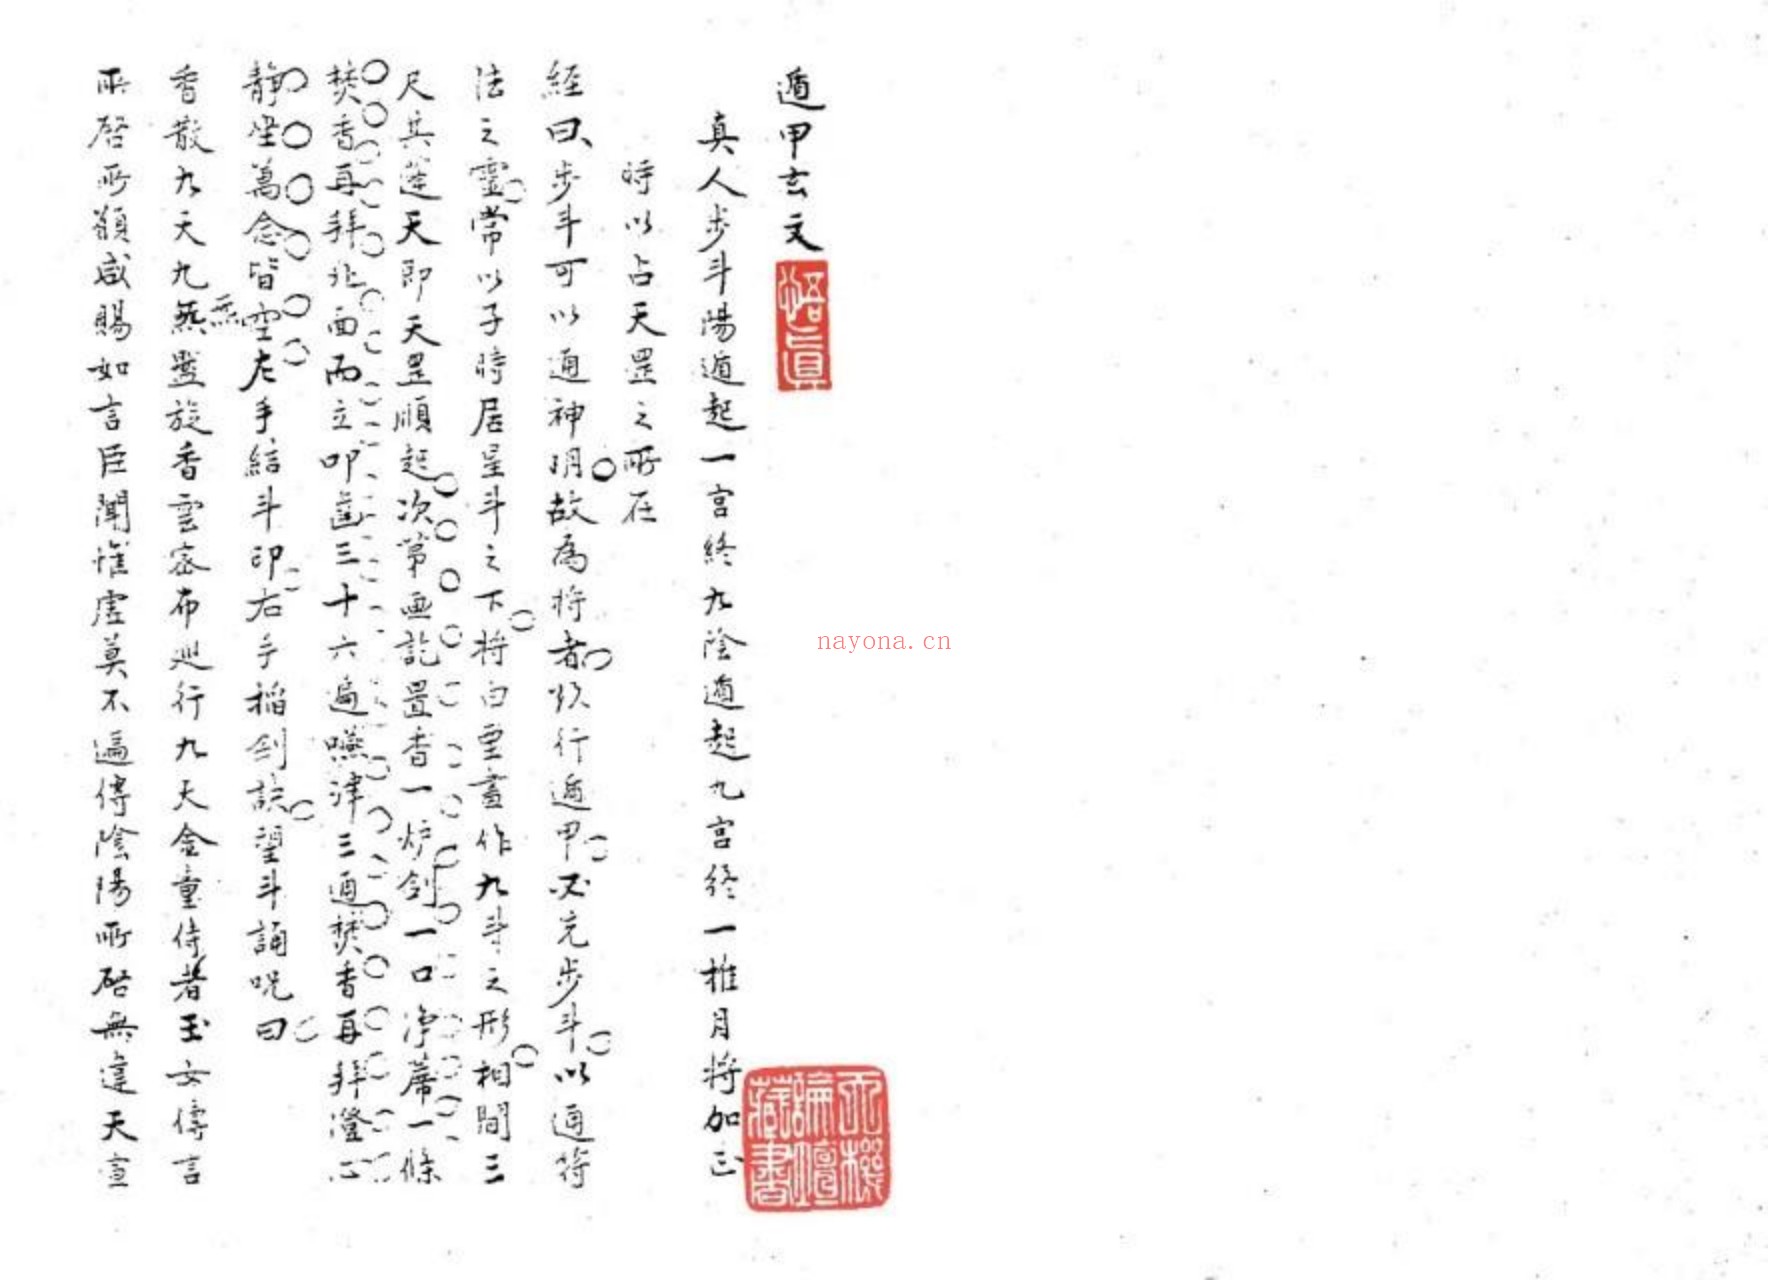 遁甲玄文
悟真
真人步斗陽遁起一宮終九陰遁起九宮終一推月将加正
時以占天罡之所在
經曰步斗可以通神明故為将者欲行遁甲必先步斗以通符
法之靈常以子時居星斗之下将白堊畫作九斗之形相間三
尺其蓬天即天罡順起次第畫訖置香一炉劍一口淨蓆一條
焚香再拜北面而立叩齒三十六遍嚥津三通焚香再拜澄心
静坐萬念皆空左手結斗印右手稻劍訣望斗誦呪曰
香散九天九炁盤旋香雲密布廵行九天金童侍者玉女傳言
炁
所啓所願咸賜如言臣聞惟虛莫不遍傳陰陽所啓無違天宣
天機論壇藏書
nayona.cn